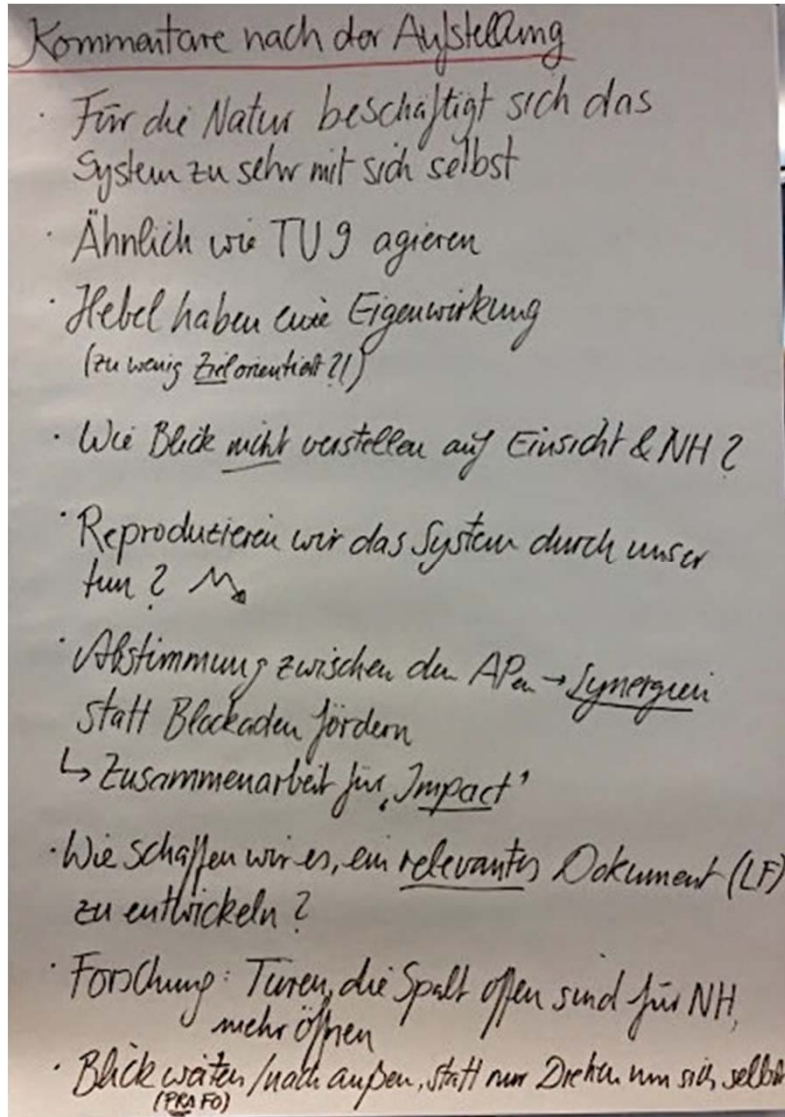 Kommentare nach der Aufstellung
· Für die Natur beschäftigt sich das
System zu sehr mit sich selbst
· Ähnlich wie TU9 agieren
· Hebel haben eine Eigenwirkung
(zu wenig Zielorientiert?!)
· Wie Blick nicht verstellen auf Einsicht & NH?
· Reproduzieren wir das System durch unser
tun?
· Abstimmung zwischen den APen → Synergien
statt Blockaden fördern
↳ Zusammenarbeit für ‚Impact'
· Wie schaffen wir es, ein relevantes Dokument (LF)
zu entwickeln?
· Forschung: Türen, die Spalt offen sind für NH,
mehr öffnen
· Blick weiten / nach außen, statt nur Drehen um sich selbst
(PRAFO)